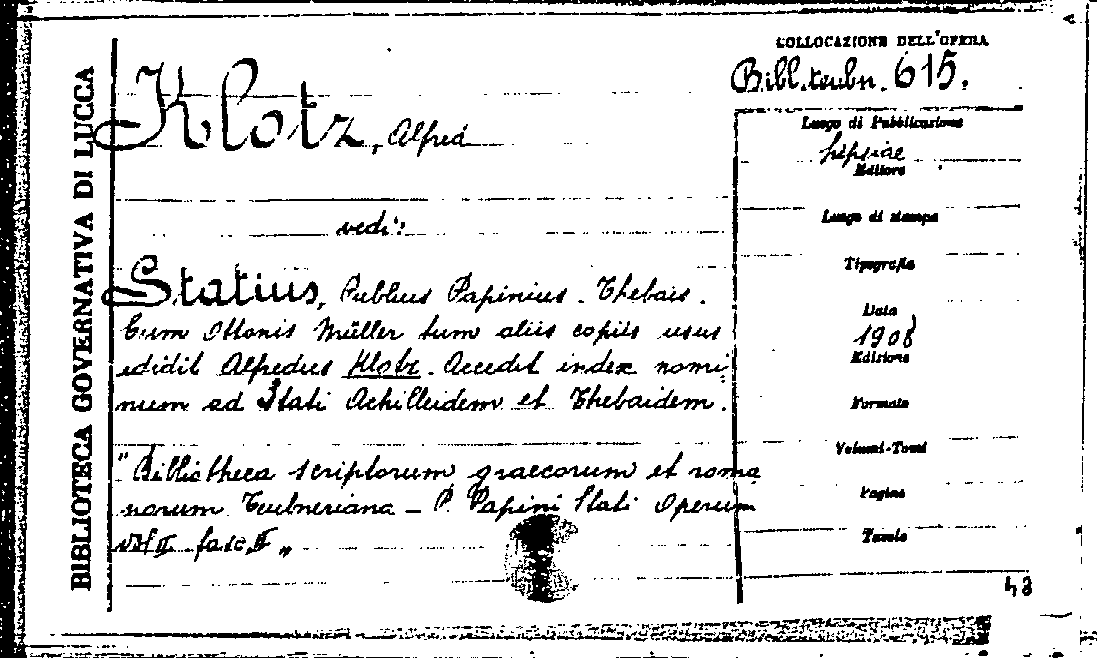 BIBLIOTECA GOVERNATIVA DI LUCCA
COLLOCAZIONE DELL'OPERA
Bibl. teubn. 615.
Klotz, Alfred
vedi:
Statius, Publius Papinius. Thebais.
Cum Ottonis Müller tum aliis copiis usus
edidit Alfredus Klotz. Accedit index nomi
num ad Stati Achilleidem et Thebaidem.
"Bibliotheca scriptorum graecorum et roma
norum Teubneriana - P. Papini Stati Operum
vol II fasc. II„
Luogo di Pubblicazione
Lipsiae
Editore
Luogo di stampa
Tipografia
Data
1908
Edizione
Formato
Volumi-Tomi
Pagine
Tavole
43